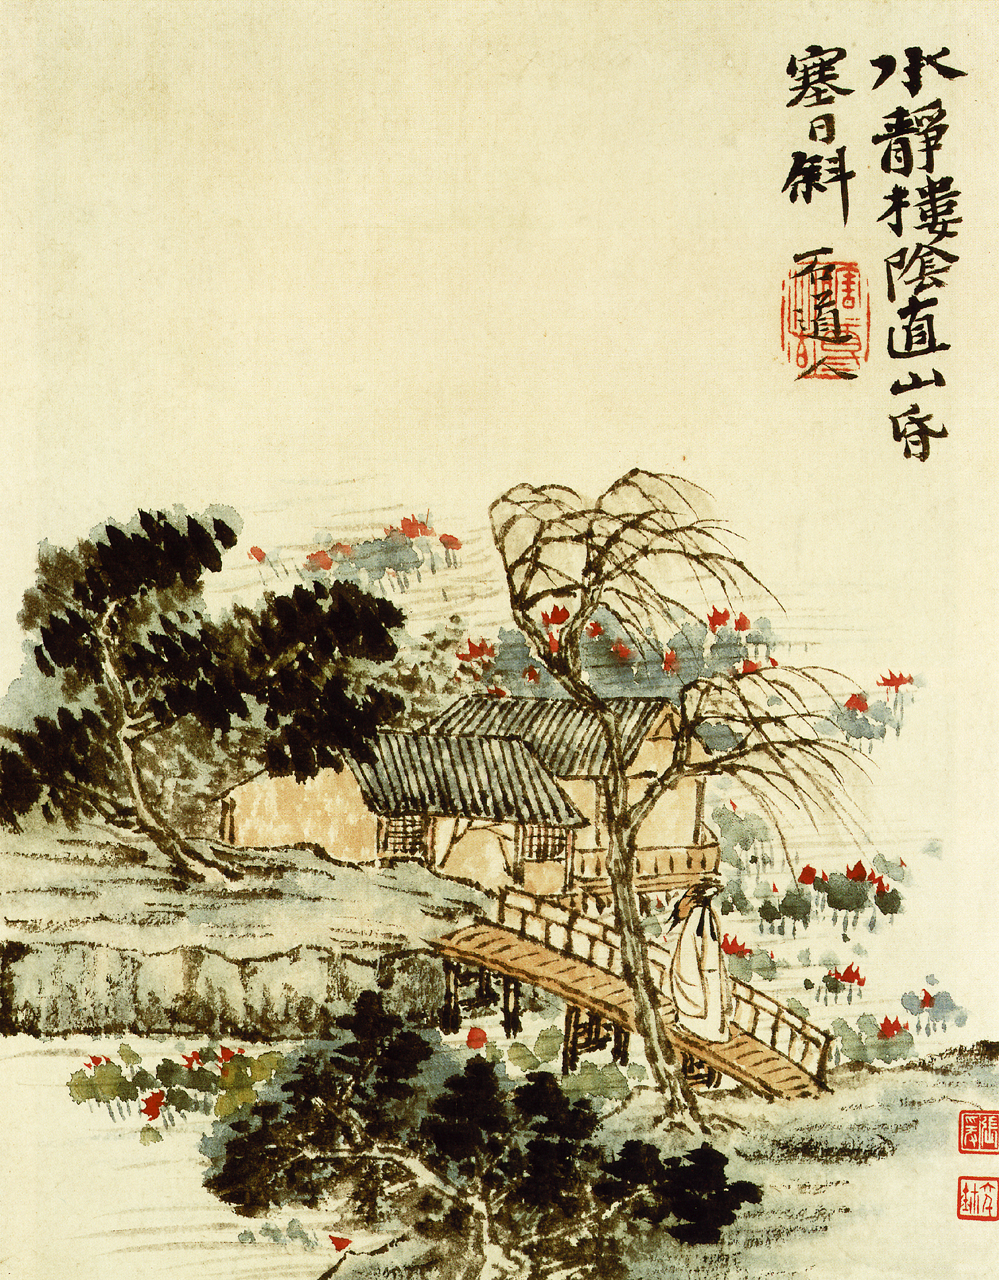 水靜樓陰直山昏
塞日斜
石道人